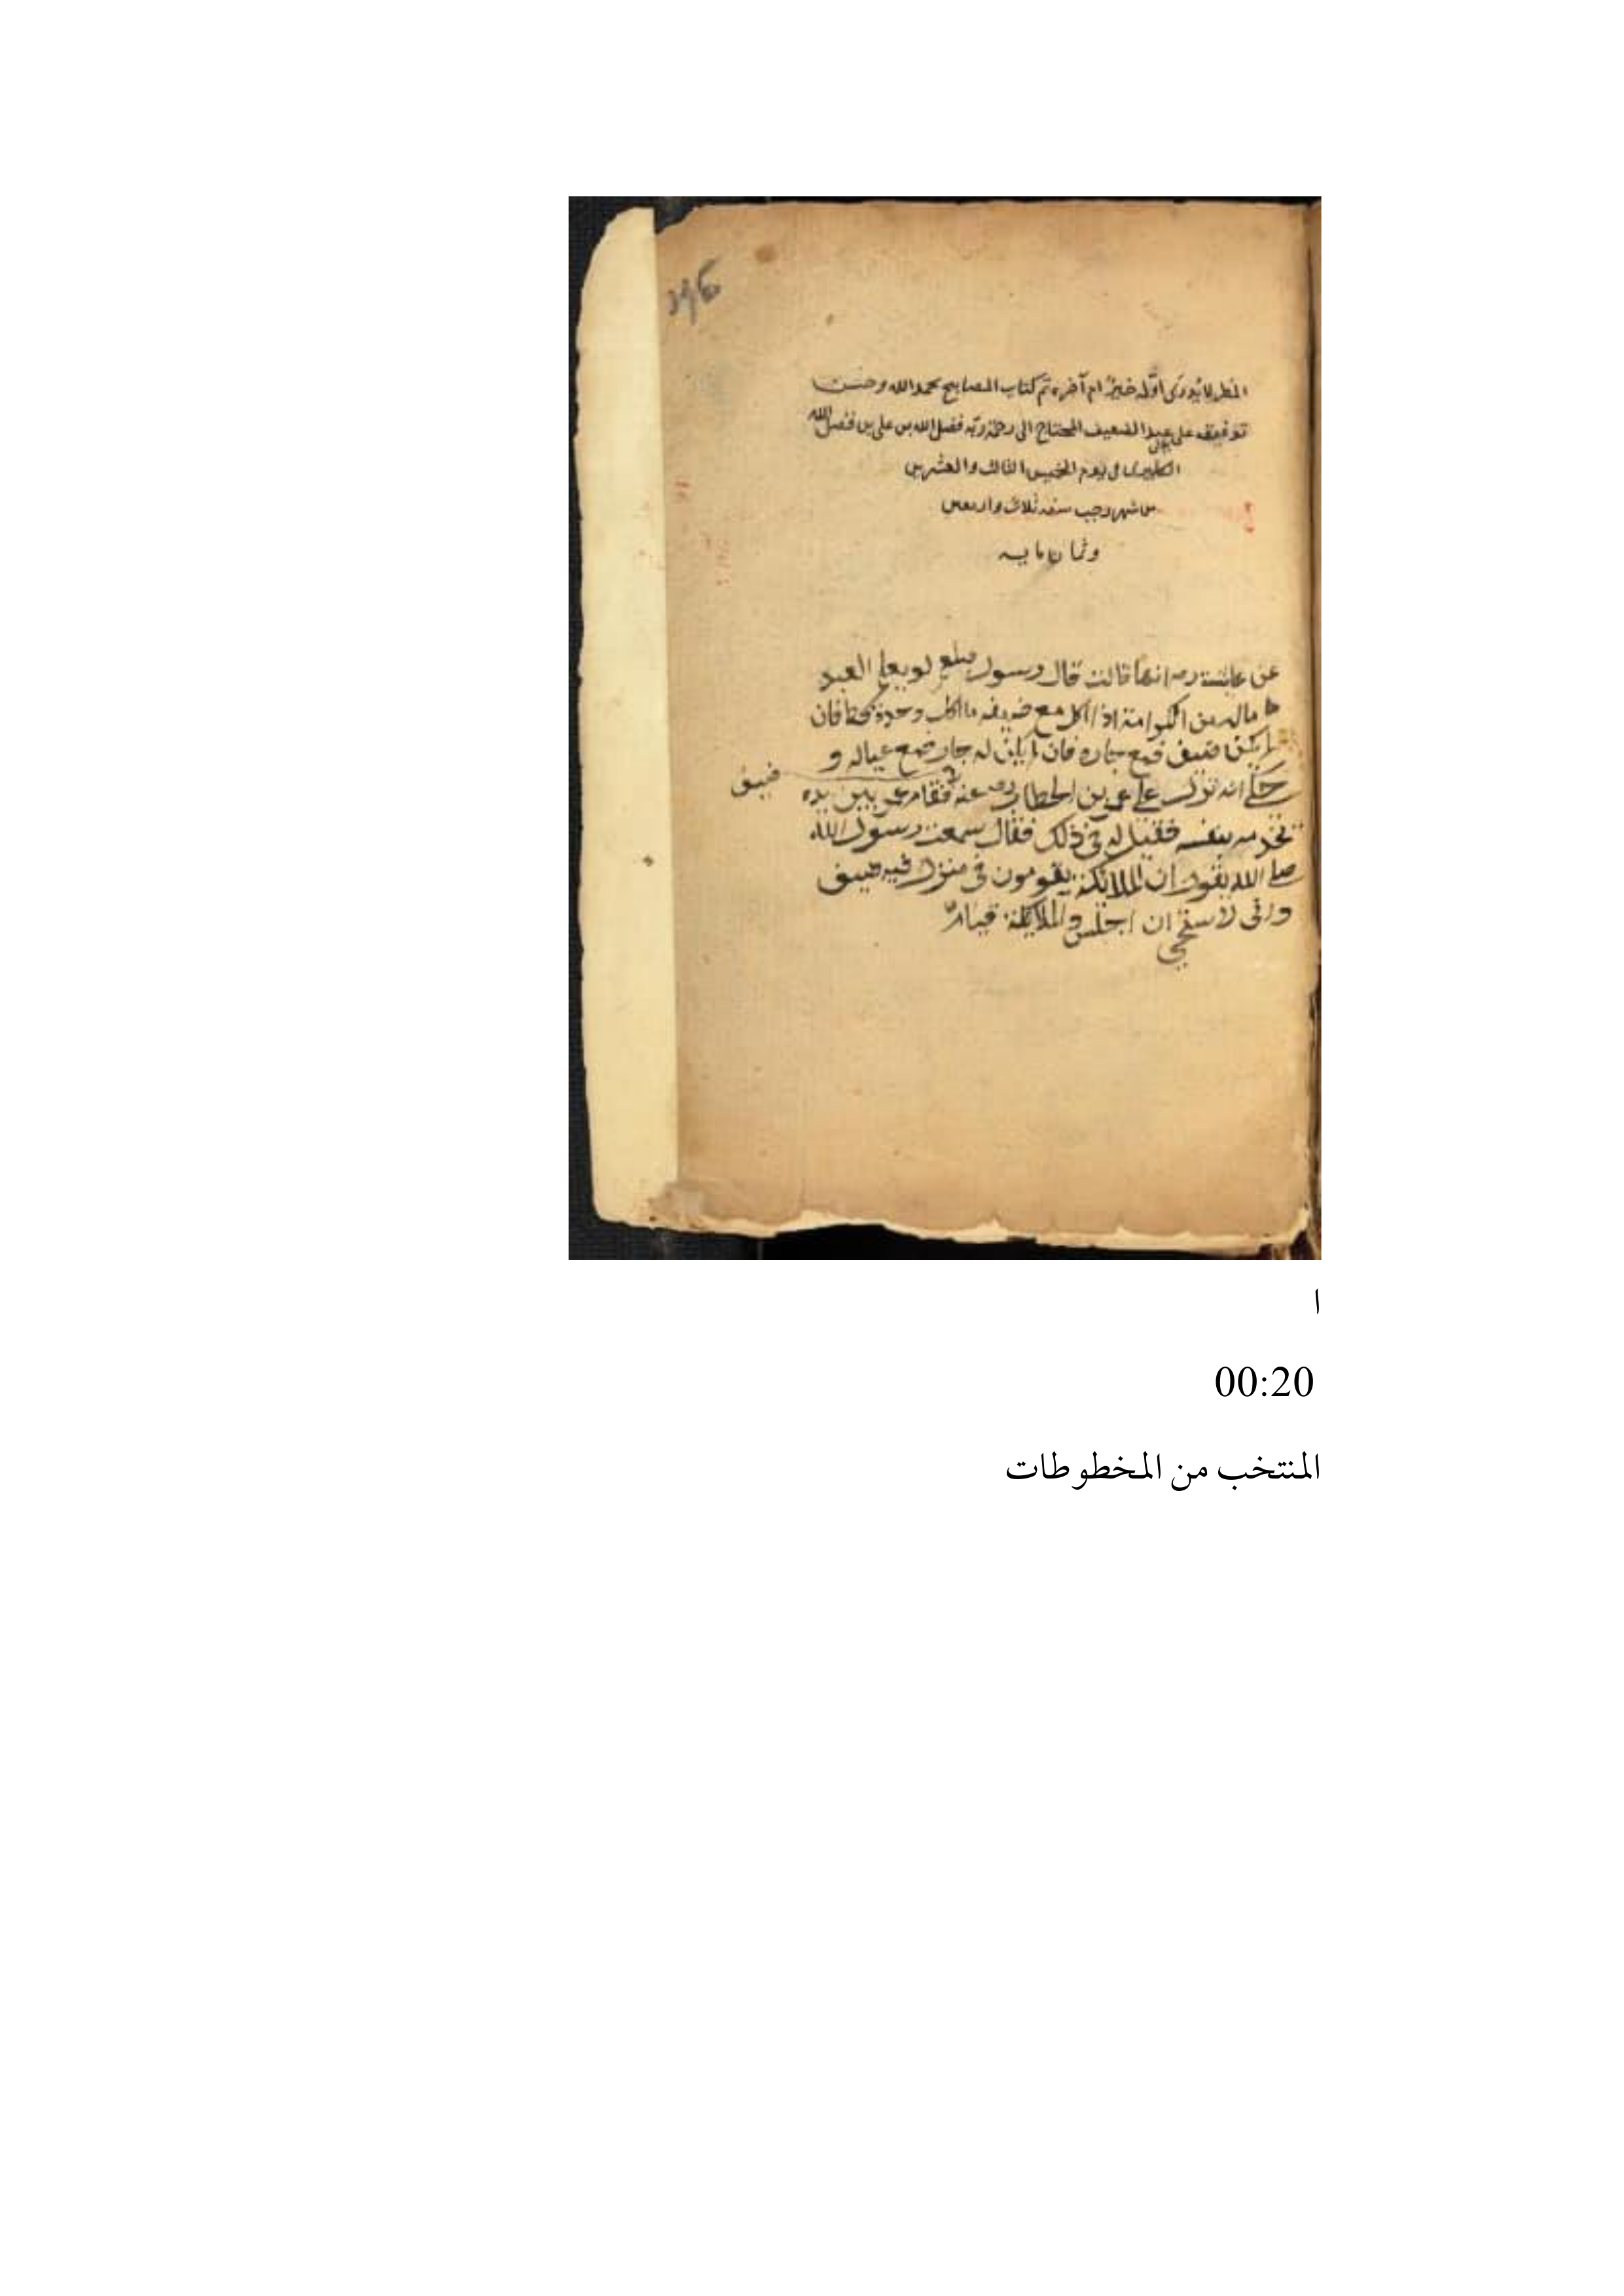 المطر لا يدرى اوّله خيرٌ ام آخره تم كتاب المصابيح بحمد الله وحسن
توفيقه على عبد الضعيف المحتاج الى رحمة ربّه فضل الله بن على بن فضل الله
فى يوم الخميس الثالث والعشرين
من شهر رجب سنه ثلاث واربعين
وثمان مايه
عن عايشة رض انها قالت قال رسول صلعم لو يعلم العبد
ماله من الكرامة اذا اكل مع ضيفه ما اكل وحده قط فان
لم يكن ضيف فمع جاره فان لم يكن له جار فمع عياله و
حكى انه نزل على عمر بن الخطاب رض عنه ضيف فقام عمر بين يده
يخدمه بنفسه فقيل له فى ذلك فقال سمعت رسول الله
صلى الله يقول ان الملايكة يقومون فى منزل فيه ضيف
وانى لاستحي ان اجلس والملايكة قيام
ا
00:20
المنتخب من المخطوطات